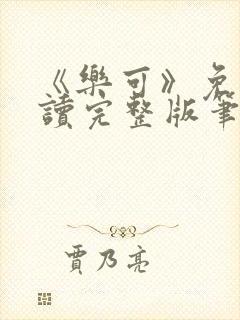 《樂可》免
讀完整版筆
賈乃亮